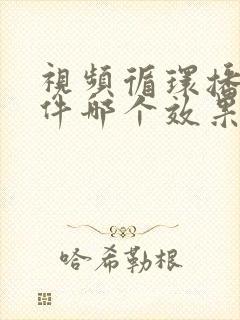 視頻循環播
件哪个效果
哈希勒根